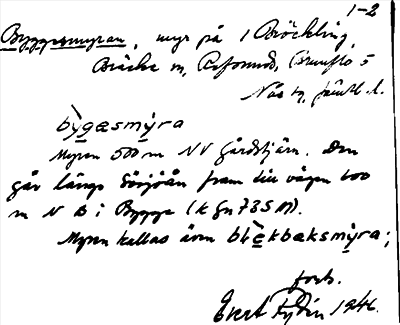 1-2
Byggesmyran, myr på 1 Bröckling,
Bräcke m, Refsund, Brunflo o
Näs tg, Jämtl. l.
by̖gæsmy̖ra
Myren 500 m NV Gårdstjärn. Den
går längs Sörjöån fram till vägen 600
m N B i Bygge (k fn 735 A).
Myren kallas även blækbæksmy̖ra;
forts.
Evert Lydin 1946.